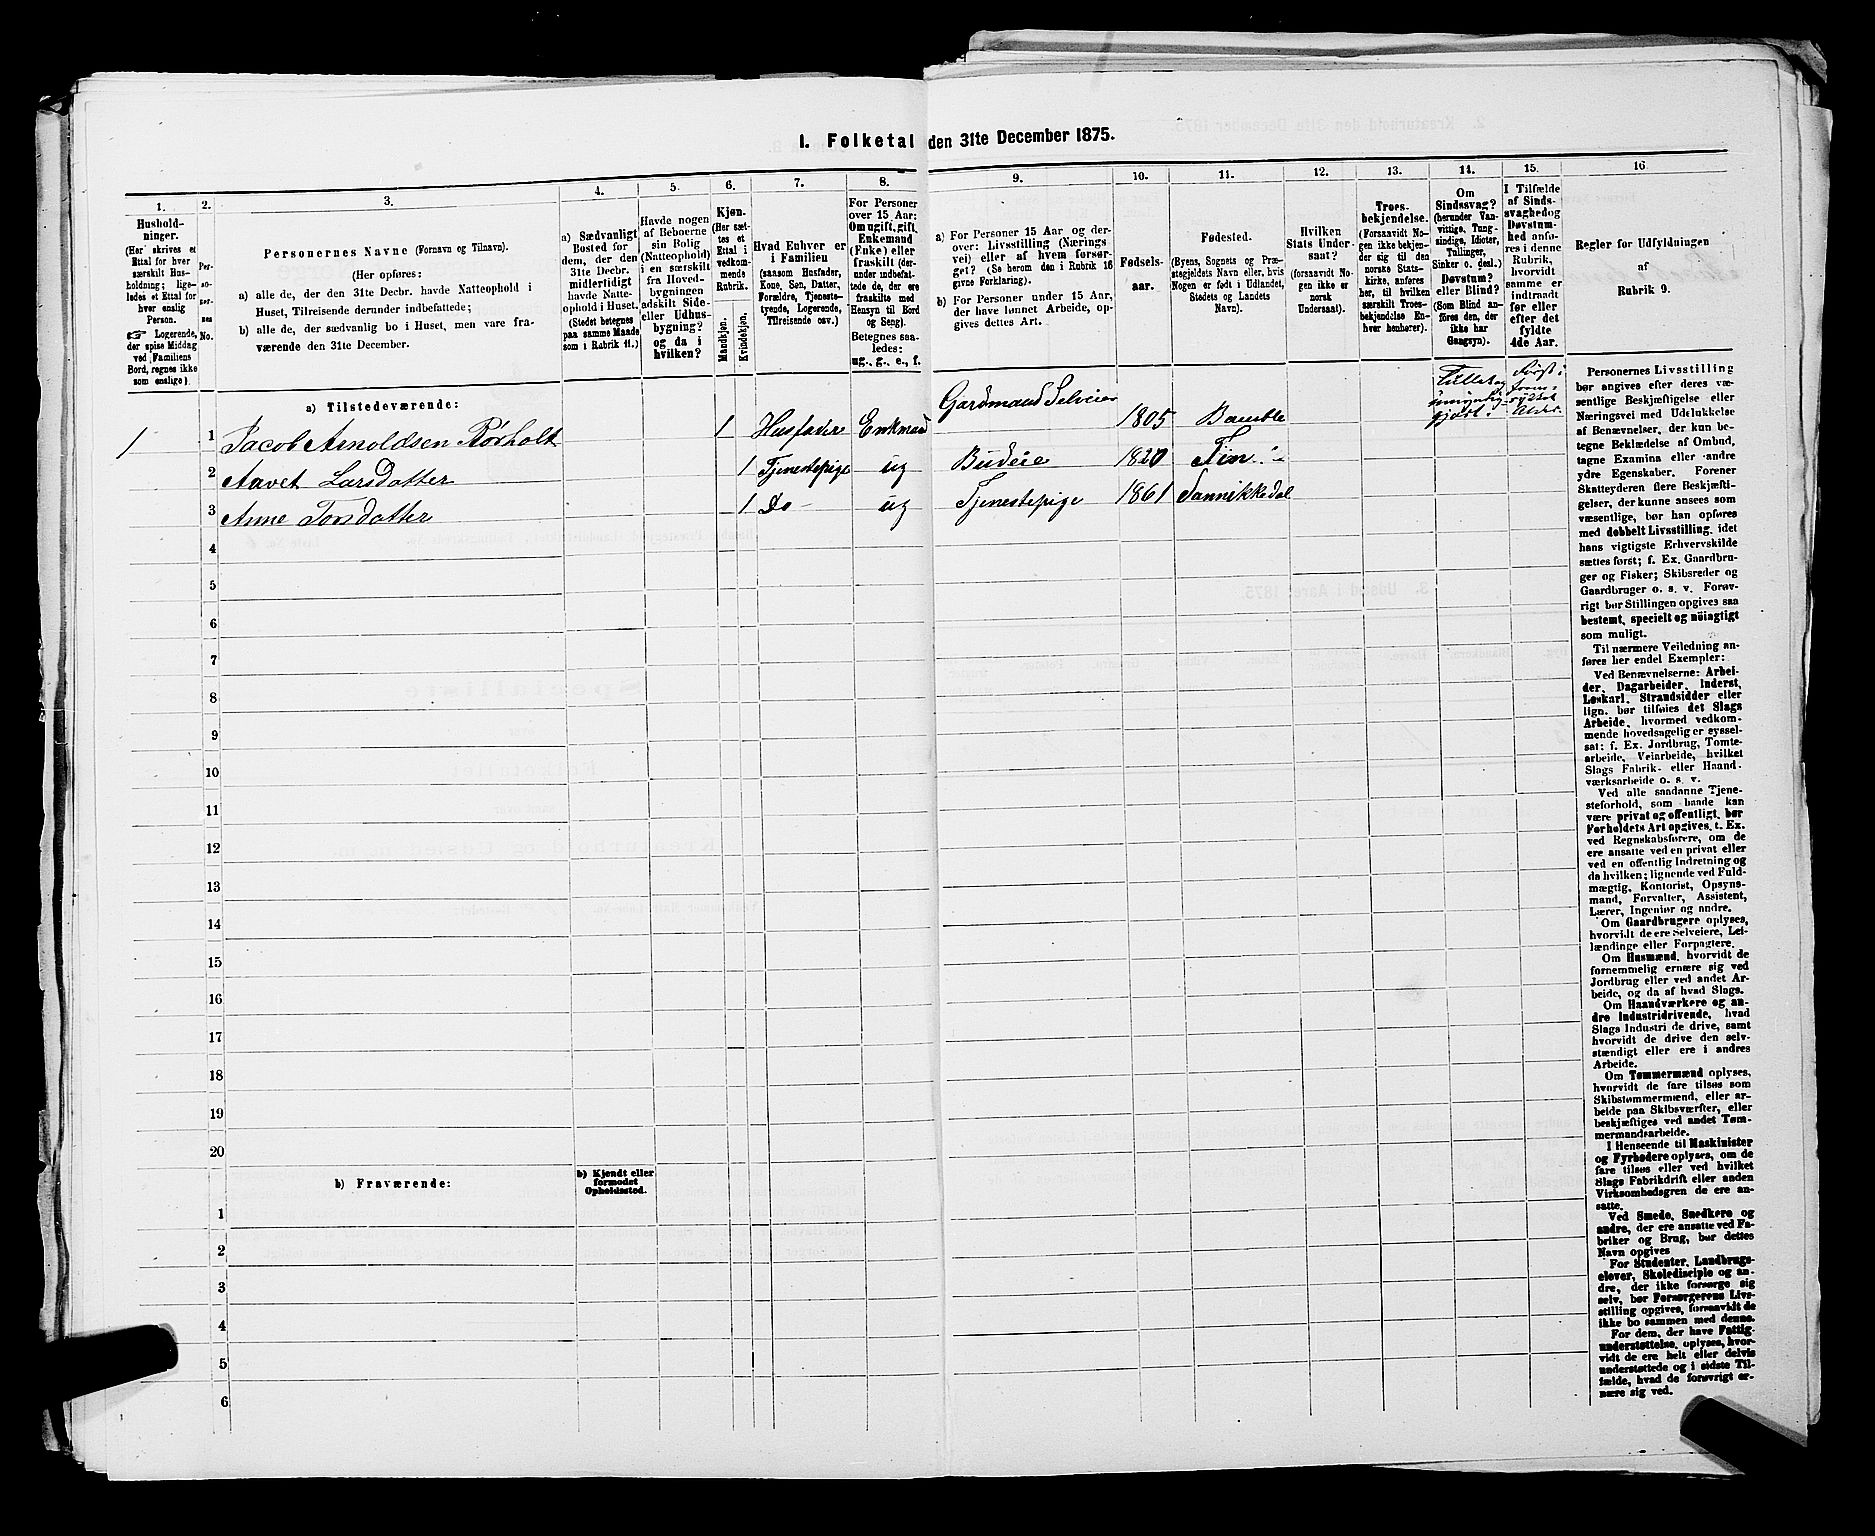 1. Folketal den 31te December 1875.
1.
Hushold-
ninger.
(Her skrives et
Ettal for hver
særskilt Hus-
holdning; lige-
ledes et Ettal for
hver enslig
Person.
☞ Logerende,
der spise Middag
ved Familiens
Bord, regnes ikke
som enslige).
2.
Per-
so-
ner-
nes
No.
3.
Personernes Navne (Fornavn og Tilnavn).
(Her opføres:
a) alle de, der den 31te Decbr. havde Natteophold i
Huset, Tilreisende derunder indbefattede;
b) alle de, der sædvanlig bo i Huset, men vare fra-
værende den 31te December.
4.
a) Sædvanligt
Bosted for
dem, der den
31te Decbr.
midlertidigt
havde Natte-
ophold i Huset.
(Stedet betegnes
paa samme Maade
som i Rubrik 11.)
5.
Havde nogen
af Beboerne
sin Bolig
(Natteophold)
i en særskilt
fra Hoved-
bygningen
adskilt Side-
eller Udhus-
bygning?
og da i
hvilken?
6.
Kjøn.
(Her sæt-
tes et
Ettal i
vedkom-
mende
Rubrik.
Mandkjøn.
Kvindekjøn.
7.
Hvad Enhver er
i Familien
(saasom Husfader,
Kone, Søn, Datter,
Forældre, Tjeneste-
tyende, Logerende,
Tilreisende osv.)
8.
For Personer
over 15 Aar:
Om ugift, gift,
Enkemand
(Enke) eller
fraskilt (der-
under indbefat-
tede de, der ere
fraskilte med
Hensyn til Bord
og Seng).
Betegnes saa-
ledes:
ug., g., e., f.
9.
a) For Personer 15 Aar og der-
over: Livsstilling (Nærings
vei) eller af hvem forsør-
get? (Se herom den i Rubrik 16
givne Forklaring).
b) For Personer under 15 Aar,
der have lønnet Arbeide, op-
gives dettes Art.
10.
Fødsels-
aar.
11.
Fødested.
(Byens, Sognets og Præ-
stegjeldets Navn eller, hvis
Nogen er født i Udlandet,
Stedets og Landets
Navn).
12.
Hvilken
Stats Under-
saat?
(forsaavidt No-
gen ikke er
norsk
Undersaat).
13.
Troes-
bekjendelse.
(Forsaavidt No-
gen ikke bekjen-
der sig til den
norske Stats-
kirke, anføres
her, til hvilken
særskilt Troes-
bekjendelse En-
hver henhører).
14.
Om
Sindssvag?
(herunder Van-
vittige, Tung-
sindige, Idioter,
Tullinger,
Sinker o. desl.)
Døvstum?
eller Blind?
(Som Blind an-
føres den, der
ikke har
Gangsyn).
15.
I Tilfælde
af Sinds-
svaghed og
Døvstum-
hed anfø-
res i denne
Rubrik,
hvorvidt
samme er
indtraadt
før eller
efter det
fyldte
4de Aar.
16
Regler for Udfyldningen
af
Rubrik 9.
a) Tilstedeværende:
1 1 Jacob Arnoldsen Rørholt 1 Husfader Enkmand Gardmand Selveier 1805 Bamble
2 Aavet Larsdatter 1 Tjenestepige ug Budeie 1820 Tin
3 Anne Torsdatter 1 Do - ug Tjenestepige 1861 Sannikkedal
4
5
6
7
8
9
10
11
12
13
14
15
16
17
18
19
20
b) Fraværende:
b) Kjendt eller
formodet
Opholdssted.
1
2
3
4
5
6
Personernes Livsstilling
bør angives efter deres væ-
sentlige Beskjæftigelse eller
Næringsvei med Udelukkelse
af Benævnelser, der kun be-
tegne Beklædelse af Ombud,
tagne Examina eller andre
ydre Egenskaber. Forener
Skatteyderen flere Beskjæfti-
gelser, der kunne ansees som
væsentlige, bør han opføres
med dobbelt Livsstilling, idet
hans vigtigste Erhvervskilde
sættes først; f. Ex. Gaardbru-
ger og Fisker; Skibsreder og
Gaardbruger o. s. v. Forøv-
rigt bør Stillingen opgives saa
bestemt, specielt og nöiagtigt
som muligt.
Til nærmere Veiledning an-
føres her endel Exempler:
Ved Benævnelserne: Arbei-
der, Dagarbeider, Inderst,
Løskarl, Strandsidder eller
lign. bør tilføies det Slags
Arbeide, hvormed vedkom-
mende hovedsagelig er syssel-
sat; f. Ex. Jordbrug, Tomte-
arbeide, Veiarbeide, hvilket
Slags Fabrik- eller Haand-
værksarbeide o. s. v.
Ved alle saadanne Tjene-
steforhold, som baade kan
være privat og offentligt, bør
Forholdets Art opgives, t. Ex.
ved Regnskabsførere, om de
ere ansatte ved en privat eller
ved en offentlig Indretning og
da hvilken; lignende ved Fuld-
mægtig, Kontorist, Opsyns-
mand, Forvalter, Assistent,
Lærer, Ingeniør og andre.
Om Gaardbrugere oplyses,
hvorvidt de ere Selveiere, Lei-
lændinge eller Forpagtere.
Om Husmænd, hvorvidt de
fornemmelig ernære sig ved
Jordbrug eller ved andet Ar-
beide, og da af hvad Slags.
Om Haandværkere og an-
dre Industridrivende, hvad
Slags Industri de drive, samt
hvorvidt de drive den selv-
stændigt eller ere i andres
Arbeide.
Om Tømmermænd oplyses,
hvorvidt de fare tilsøs som
Skibstømmermænd, eller ar-
beide paa Skibsværfter, eller
beskjæftiges ved andet Tøm-
mermandsarbeide.
I Henseende til Maskinister
og Fyrbødere oplyses, om de
fare tilsøs eller ved hvilket
Slags Fabrikdrift eller anden
Virksomhedsgren de ere an-
satte.
Ved Smede, Snedkere og
andre, der ere ansatte ved Fa-
briker og Brug, bør dettes
Navn opgives
For Studenter, Landbrugs-
elever, Skoledisciple og an-
dre, der ikke forsørge sig
selv, bør Forsørgerens Livs-
stilling opgives, forsaavidt de
ikke bo sammen med denne.
For dem, der have Fattig-
understøttelse, oplyses, hvor-
vidt de ere helt eller delvis
understøttede og i sidste Til-
fælde, hvad de forøvrigt er-
nære sig ved.